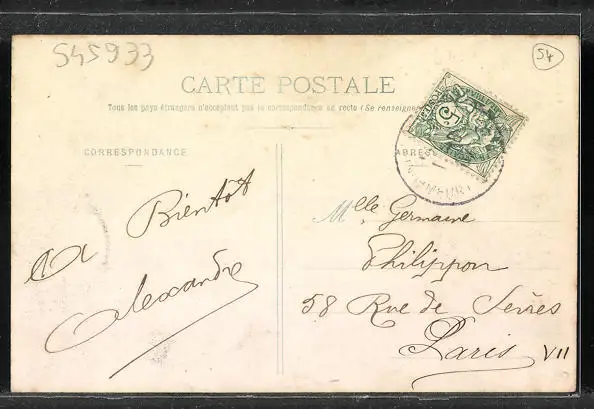 545933
54
CARTE POSTALE
Tous les pays étrangers n'acceptant pas la correspondance au recto (Se renseigner
CORRESPONDANCE
ADRES
5c
A Bientôt
Alexandre
Mlle Germaine
Philippon
58 Rue de Sèvres
Paris VII